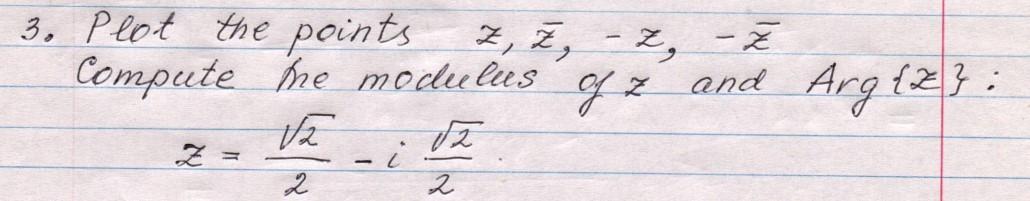 3. Plot the points z, z̄, -z, -z̄
Compute the modulus of z and Arg{z}:
z = √2/2 - i √2/2.